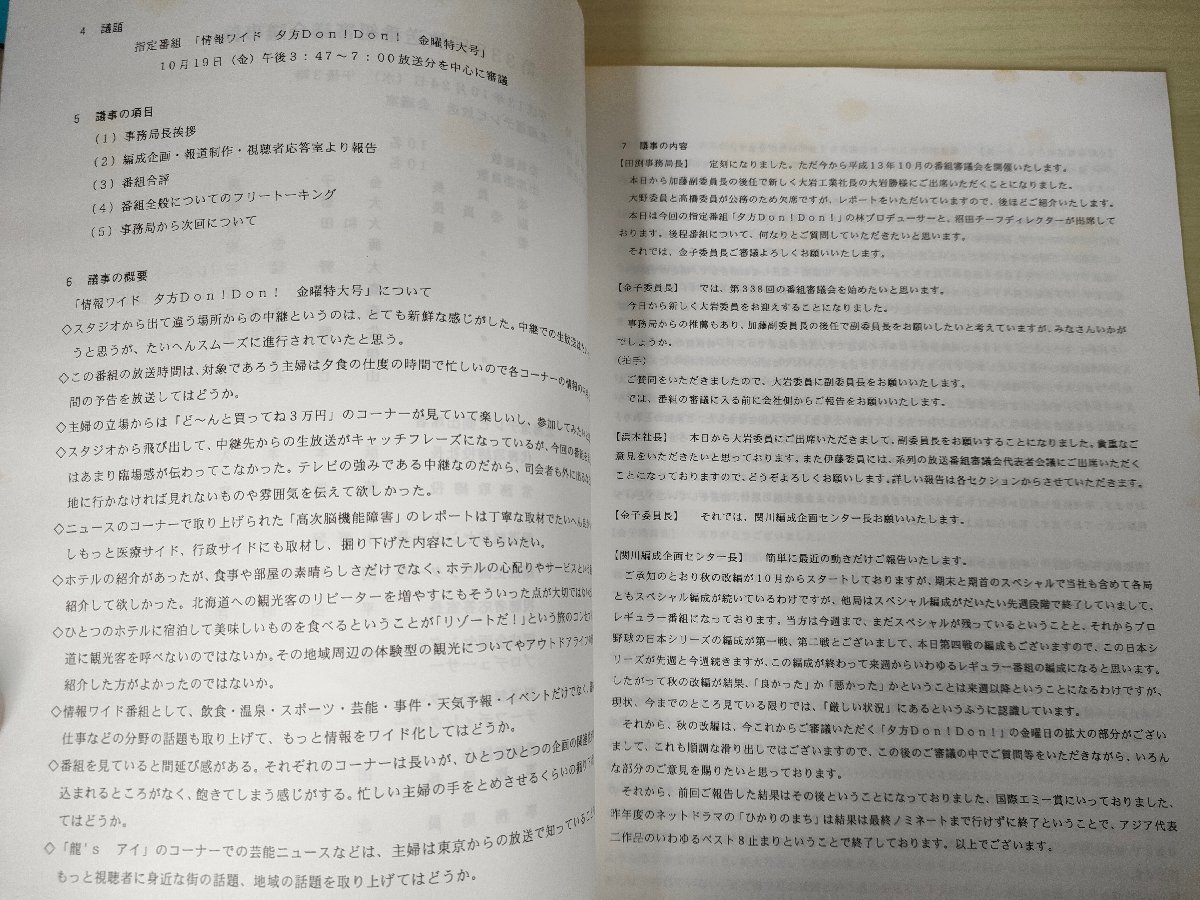 4　議題
指定番組　「情報ワイド　夕方Ｄｏｎ！Ｄｏｎ！　金曜特大号」
１０月１９日（金）午後３：４７～７：００放送分を中心に審議
5　議事の項目
（１）事務局長挨拶
（２）編成企画・報道制作・視聴者応答室より報告
（３）番組合評
（４）番組全般についてのフリートーキング
（５）事務局から次回について
6　議事の概要
「情報ワイド　夕方Ｄｏｎ！Ｄｏｎ！　金曜特大号」について
◇スタジオから出て違う場所からの中継というのは、とても新鮮な感じがした。中継での生放送は
うと思うが、たいへんスムーズに進行されていたと思う。
◇この番組の放送時間は、対象であろう主婦は夕食の仕度の時間で忙しいので各コーナーの情報の
間の予告を放送してはどうか。
◇主婦の立場からは『ど～んと買ってね３万円』のコーナーが見ていて楽しいし、参加してみたい
◇スタジオから飛び出して、中継先からの生放送がキャッチフレーズになっているが、今回の番組
はあまり臨場感が伝わってこなかった。テレビの強みである中継なのだから、司会者も外に出る
地に行かなければ見れないものや雰囲気を伝えて欲しかった。
◇ニュースのコーナーで取り上げられた「高次脳機能障害」のレポートは丁寧な取材でたいへん
しもっと医療サイド、行政サイドにも取材し、掘り下げた内容にしてもらいたい。
◇ホテルの紹介があったが、食事や部屋の素晴らしさだけでなく、ホテルの心配りやサービスとい
紹介して欲しかった。北海道への観光客のリピーターを増やすにもそういった点が大切では
◇ひとつのホテルに宿泊して美味しいものを食べるということが「リゾートだ！」という旅のコンセプ
道に観光客を呼べないのではないか。その地域周辺の体験型の観光についてやアウトドアライフ
紹介した方がよかったのではないか。
◇情報ワイド番組として、飲食・温泉・スポーツ・芸能・事件・天気予報・イベントだけでなく、
仕事などの分野の話題も取り上げて、もっと情報をワイド化してはどうか。
◇番組を見ていると間延び感がある。それぞれのコーナーは長いが、ひとつひとつの企画の関連
込まれるところがなく、飽きてしまう感じがする。忙しい主婦の手をとめさせるくらいの掘り下
てはどうか。
◇「龍's　アイ」のコーナーでの芸能ニュースなどは、主婦は東京からの放送で知っていること
もっと視聴者に身近な街の話題、地域の話題を取り上げてはどうか。
7　議事の内容
【田渕事務局長】　定刻になりました。ただ今から平成１３年１０月の番組審議会を開催いたします。
本日から加藤副委員長の後任で新しく大岩工業社長の大岩勝様にご出席いただくことになりました。
大野委員と高橋委員が公務のため欠席ですが、レポートをいただいていますので、後ほどご紹介いたします。
本日は今回の指定番組「夕方Ｄｏｎ！Ｄｏｎ！」の林プロデューサーと、沼田チーフディレクターが出席して
おります。後程番組について、何なりとご質問していただきたいと思います。
それでは、金子委員長ご審議よろしくお願いいたします。
【金子委員長】　では、第３３８回の番組審議会を始めたいと思います。
今日から新しく大岩委員をお迎えすることになりました。
事務局からの推薦もあり、加藤副委員長の後任で副委員長をお願いしたいと考えていますが、みなさんいかが
でしょうか。
（拍手）
ご賛同をいただきましたので、大岩委員に副委員長をお願いいたします。
では、番組の審議に入る前に会社側からご報告をお願いいたします。
【浜本社長】　本日から大岩委員にご出席いただきまして、副委員長をお願いすることになりました。貴重なご
意見をいただきたいと思っております。また伊藤委員には、系列の放送番組審議会代表者会議にご出席いただく
ことになっておりますので、どうぞよろしくお願いします。詳しい報告は各セクションからさせていただきます。
【金子委員長】　それでは、関川編成企画センター長お願いいたします。
【関川編成企画センター長】　簡単に最近の動きだけご報告いたします。
ご承知のとおり秋の改編が１０月からスタートしておりますが、期末と期首のスペシャルで当社も含めて各局
ともスペシャル編成が続いているわけですが、他局はスペシャル編成がだいたい先週段階で終了していまして、
レギュラー番組になっております。当方は今週まで、まだスペシャルが残っているということと、それからプロ
野球の日本シリーズの編成が第一戦、第二戦とございまして、本日第四戦の編成もございますので、この日本シ
リーズが先週と今週続きますが、この編成が終わって来週からいわゆるレギュラー番組の編成になると思います。
したがって秋の改編が結果、「良かった」か「悪かった」かということは来週以降ということになるわけですが、
現状、今までのところ見ている限りでは、「厳しい状況」にあるというふうに認識しています。
それから、秋の改編は、今これからご審議いただく「夕方Ｄｏｎ！Ｄｏｎ！」の金曜日の拡大の部分がござい
まして、これも順調な滑り出しではございますので、この後のご審議の中でご質問等をいただきながら、いろん
な部分のご意見を賜りたいと思っております。
それから、前回ご報告した結果はその後ということになっておりました、国際エミー賞にいっておりました、
昨年度のネットドラマの「ひかりのまち」は結果は最終ノミネートまで行けずに終了ということで、アジア代表
二作品のいわゆるベスト８止まりということで終了しております。以上でございます。